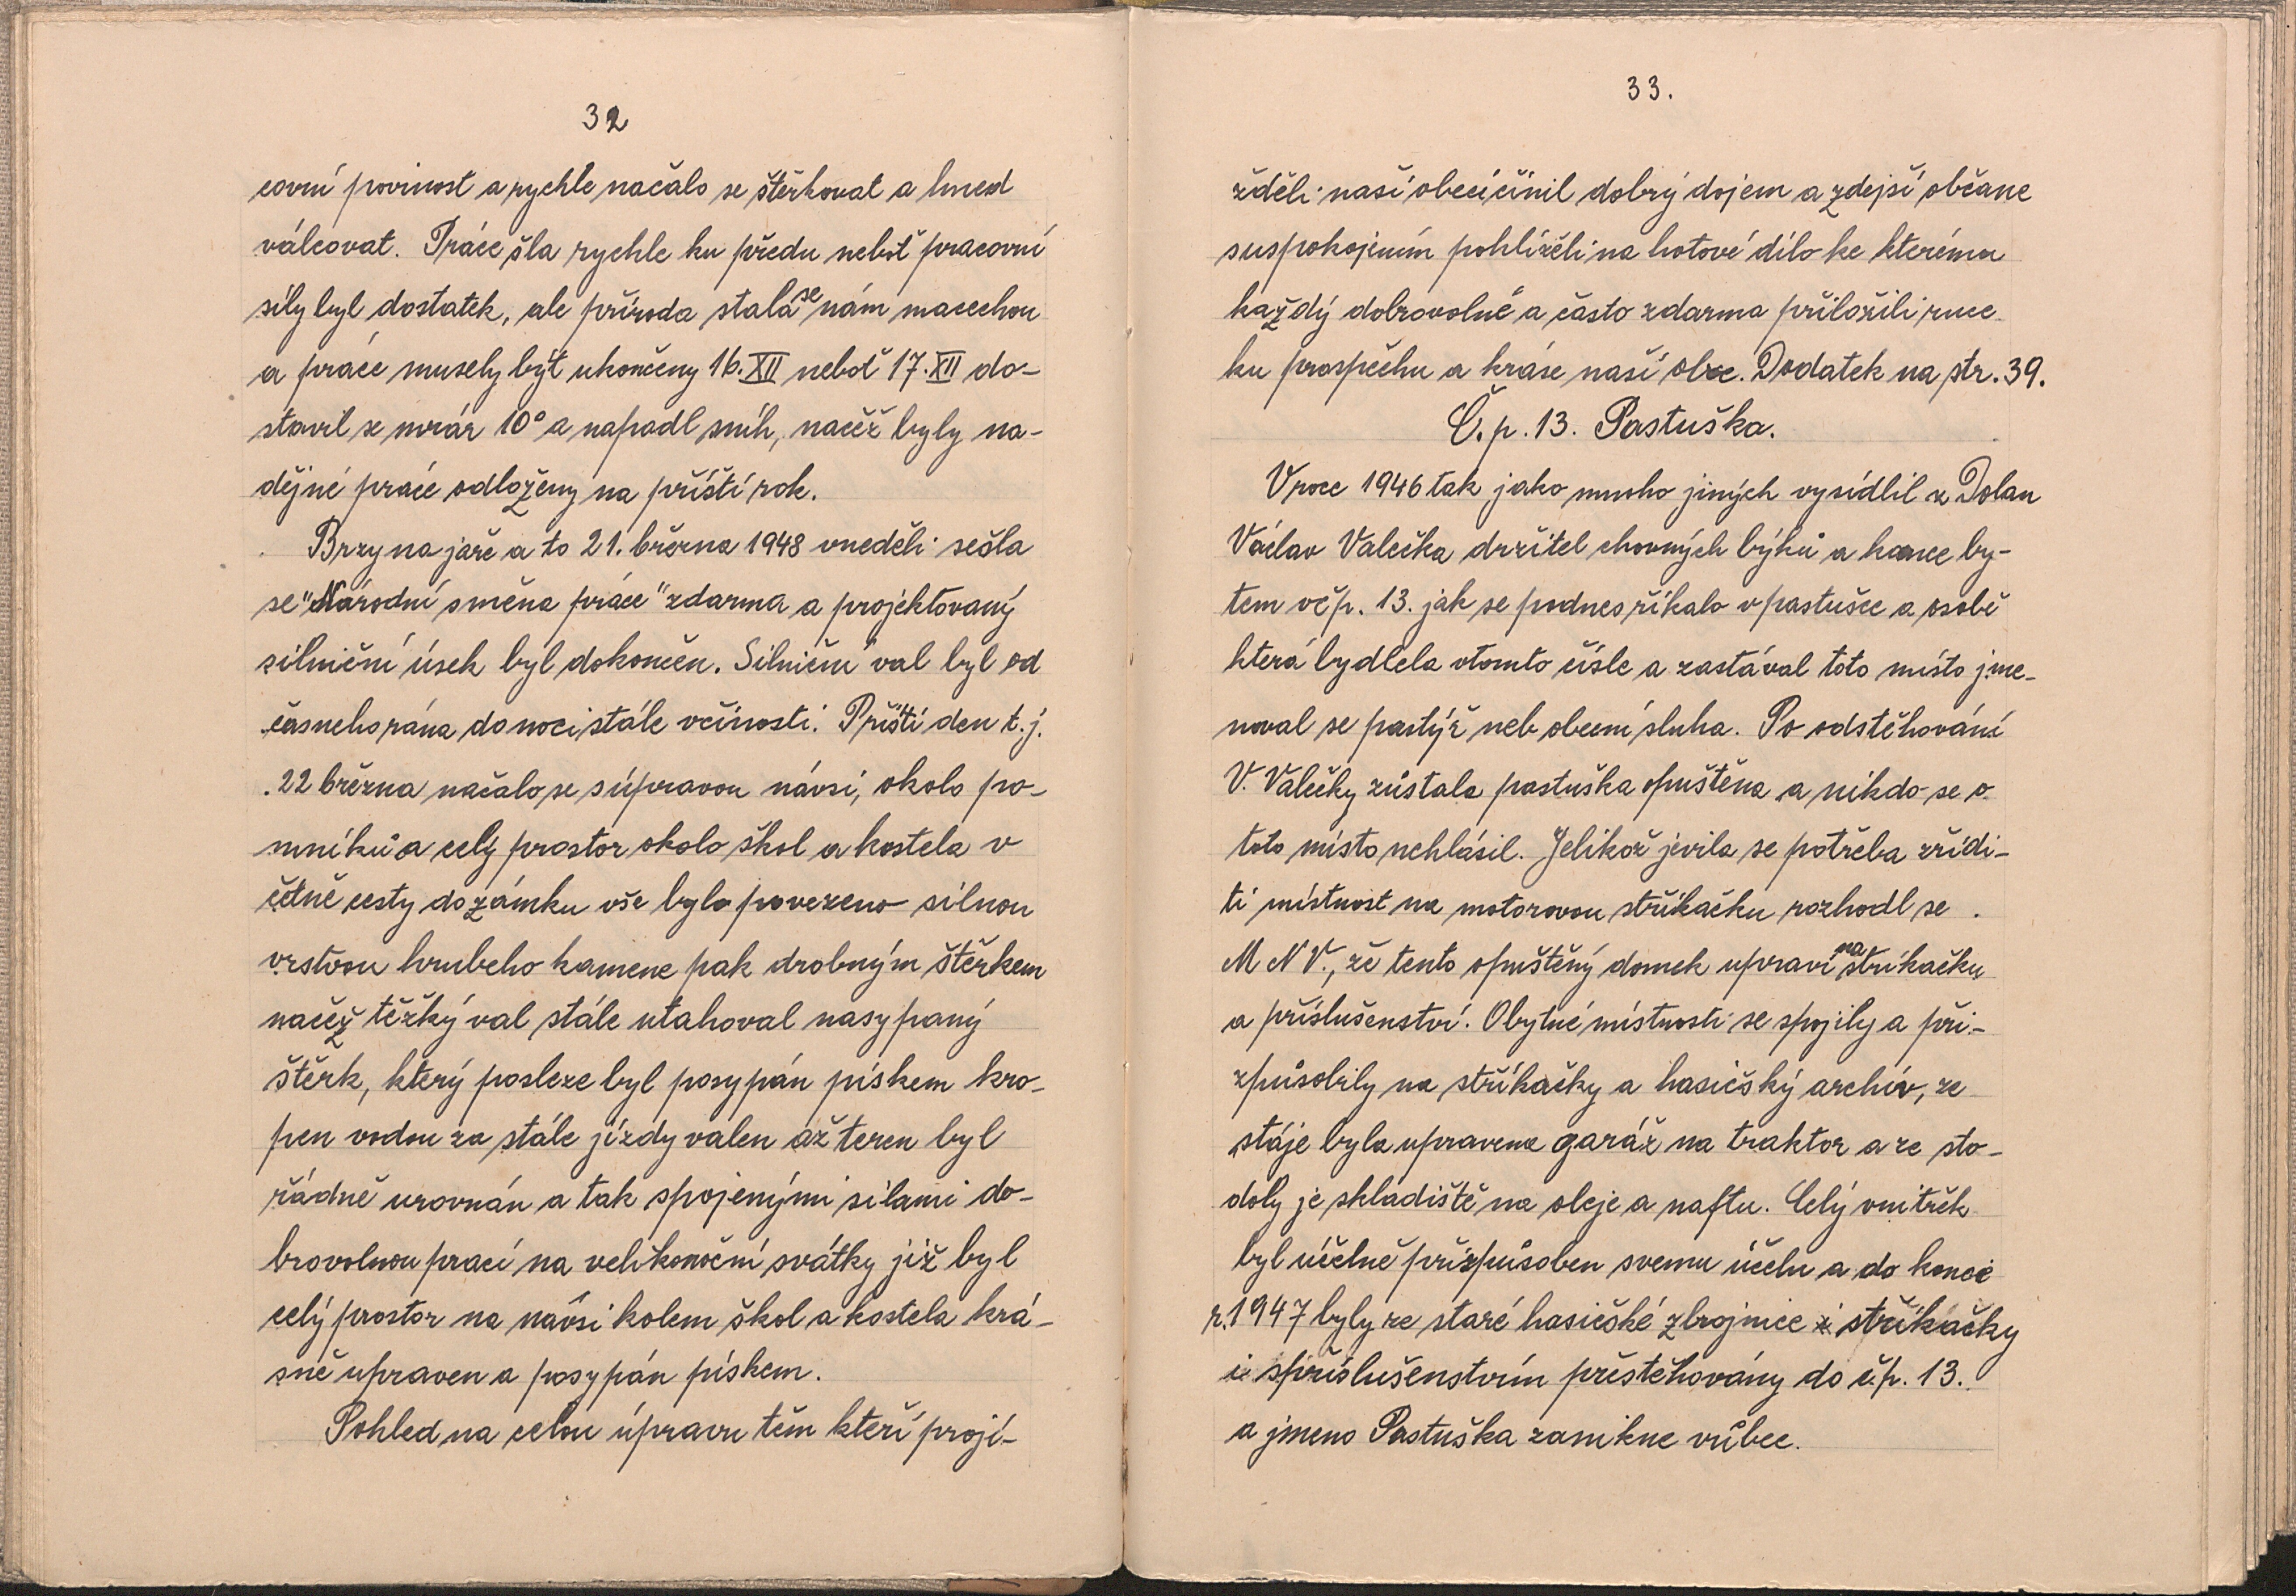 32
covní povinost a rychle načalo se štěrkovat a hned
válcovat. Práce šla rychle ku předu nebot pracovní
síly byl dostatek, ale příroda stala se nám macechou
a práce musely být ukončeny 16. XII nebot 17. XII do-
stavil se mráz 10° a napadl sníh, načež byly na-
dějné práce odloženy na příští rok.
Brzy na jaře a to 21. března 1948 v neděli sešla
se "Národní směna práce" zdarma a projektovaný
silniční úsek byl dokončen. Silniční val byl od
časneho rána do noci stále v činosti. Příští den t. j.
22 března načalo se s úpravou návsi, okolo po-
mníků a celý prostor okolo škol a kostela v
četně cesty do zámku vše bylo povezeno silnou
vrstvou hrubeho kamene pak drobným štěrkem
načež těžký val stále utahoval nasypaný
štěrk, který posleze byl posypán pískem kro-
pen vodou za stále jízdy valen až teren byl
řádně urovnán a tak spojenými silami do-
brovolnou prací na velikonoční svátky již byl
celý prostor na návsi kolem škol a kostela krá-
sně upraven a posypán pískem.
Pohled na celou úpravu těm kteří projí-
33.
žděli naší obecí činil dobrý dojem a zdejší občane
s uspokojením pohlíželi na hotové dílo ke kterému
každý dobrovolně a často zdarma přiložili ruce
ku prospěchu a kráse naší obce. Dodatek na str. 39.
Č. p. 13. Pastuška.
V roce 1946 tak jako mnoho jiných vysídlil z Dolan
Václav Valečka držitel chovných býků a kance by-
tem v čp. 13. jak se podnes říkalo v pastušce a osobě
která bydlela v tomto čísle a zastával toto místo jme-
noval se pastýř neb obecní sluha. Po odstěhování
V. Valečky zůstala pastuška opuštěna a nikdo se o
toto místo nehlásil. Jelikož jevila se potřeba zřídi-
ti místnost na motorovou stříkačku rozhodl se
M N V., že tento opuštěný domek upraví na stříkačku
a příslušenství. Obytné místnosti se spojily a při-
způsobily na stříkačky a hasičský archiv, ze
stáje byla upravena garáž na traktor a ze sto-
doly je skladiště na oleje a naftu. Celý vnitřek
byl účelně přizpůsoben svemu účelu a do konce
r. 1947 byly ze staré hasičské zbrojnice stříkačky
i s příslušenstvím přestěhovány do č.p. 13.
a jmeno Pastuška zanikne vůbec.